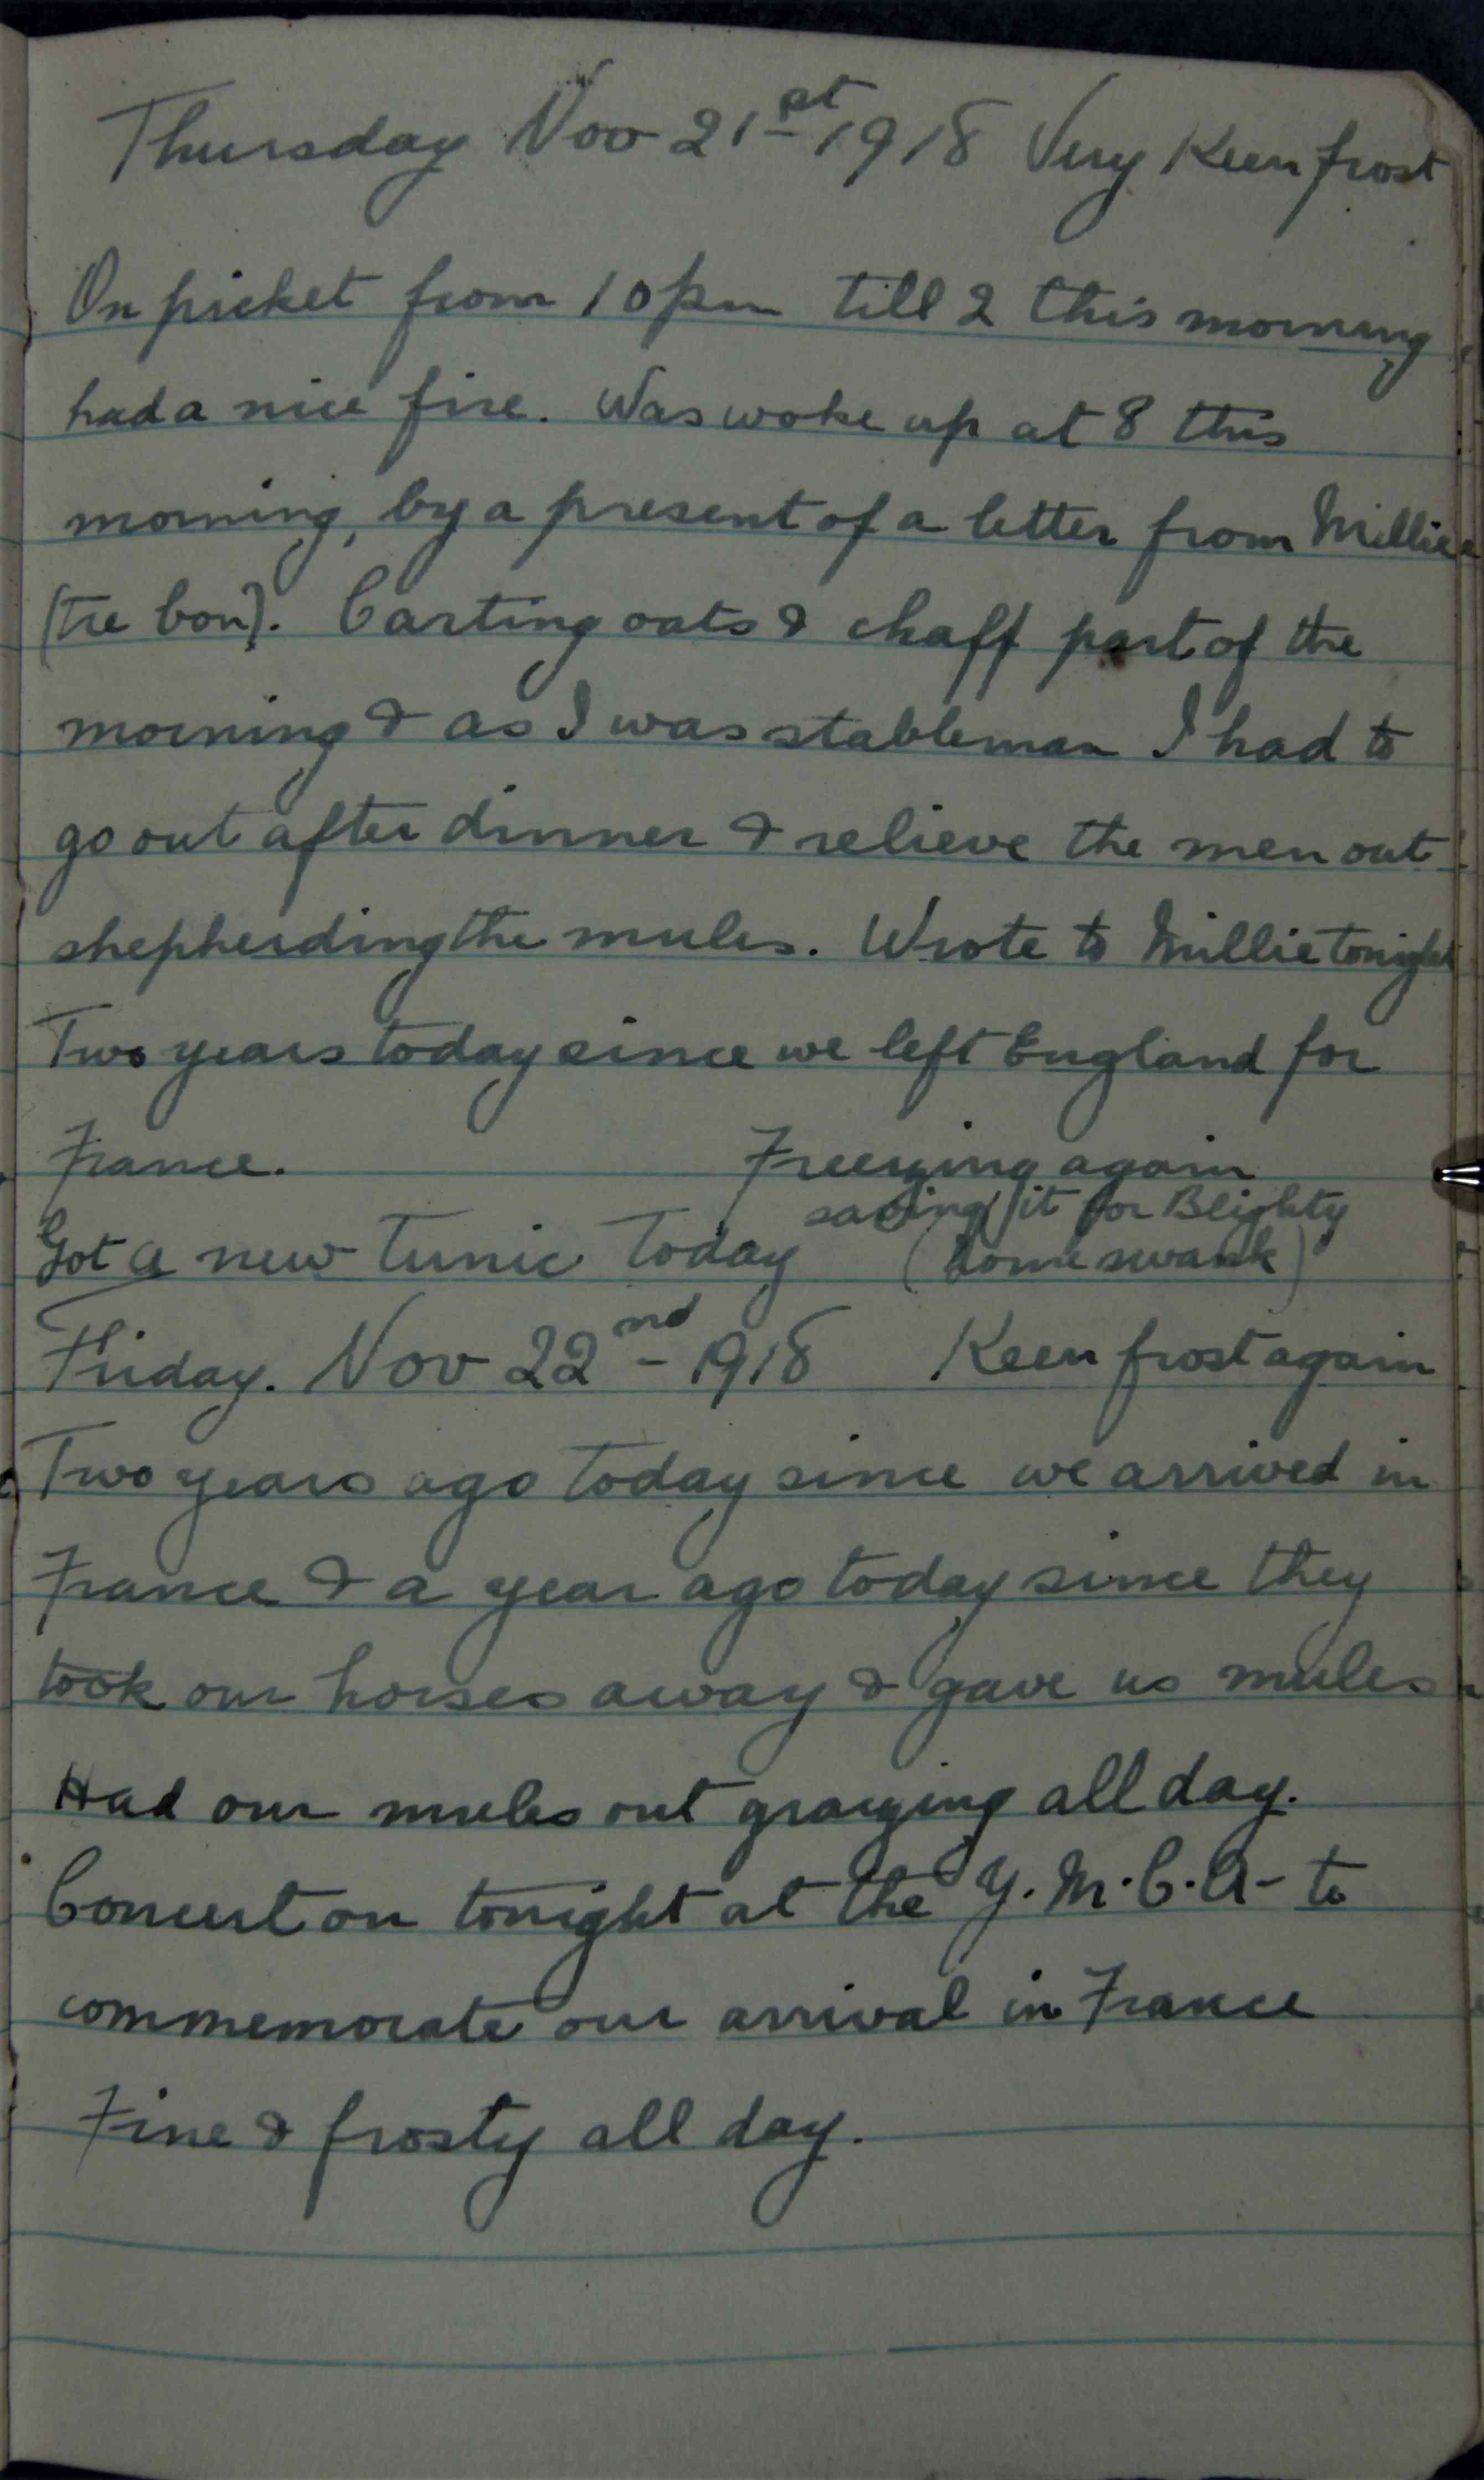 Thursday Nov 21st 1918 Very Keen frost
On picket from 10pm till 2 this morning,
had a nice fire. Was woke up at 8 this
morning, by a present of a letter from Millie
(tre bon). Carting oats & chaff part of the
morning & as I was stableman I had to
go out after dinner & relieve the men out
shepherding the mules. Wrote to Millie tonight
Two years today since we left England for
France. Freezing again
saving it for Blighty
Got a new tunic today (some swank)
Friday. Nov 22nd 1918 Keen frost again
Two years ago today since we arrived in
France & a year ago today since they
took our horses away & gave us mules
Had our mules out grazing all day.
Concert on tonight at the Y.M.C.A- to
commemorate our arrival in France
Fine & frosty all day.